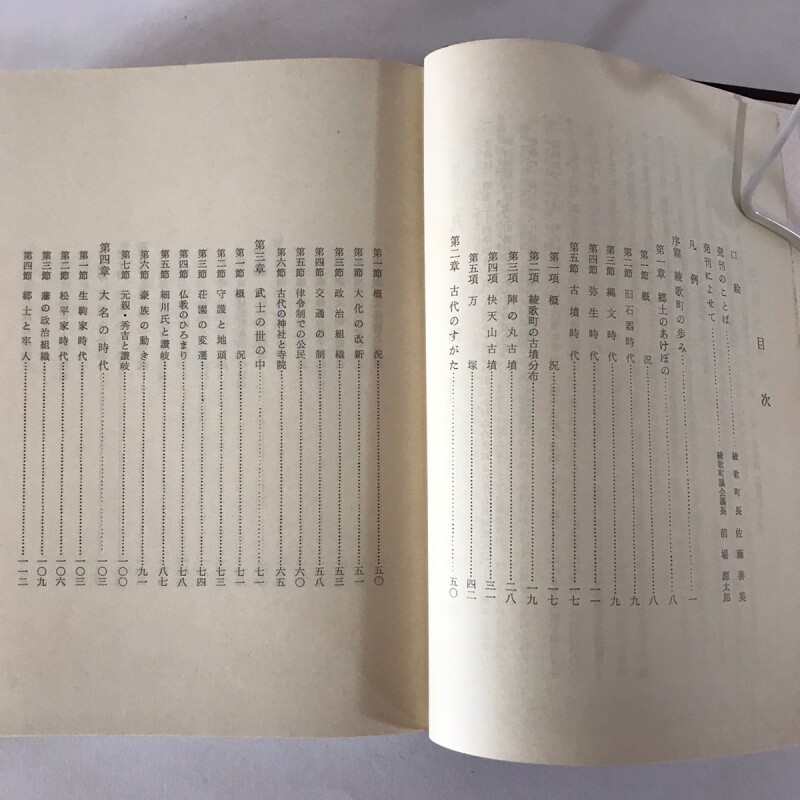 目次
口絵
発刊のことば……綾歌町長 佐藤善美
発刊によせて……綾歌町議会議長 前場源太郎
凡例
序篇 綾歌町の歩み……一
第一章 郷土のあけぼの……八
第一節 概況……八
第二節 旧石器時代……九
第三節 縄文時代……九
第四節 弥生時代……一一
第五節 古墳時代……一七
第一項 概況……一七
第二項 綾歌町の古墳分布……一九
第三項 陣の丸古墳……二八
第四項 快天山古墳……三一
第五項 万塚……四二
第二章 古代のすがた……五〇
第一節 概況……五〇
第二節 大化の改新……五一
第三節 政治組織……五三
第四節 交通の制……五八
第五節 律令制での公民……六〇
第六節 古代の神社と寺院……六五
第三章 武士の世の中……七一
第一節 概況……七一
第二節 守護と地頭……七三
第三節 荘園の変遷……七四
第四節 仏教のひろまり……七八
第五節 細川氏と讃岐……八七
第六節 豪族の動き……九一
第七節 元親・秀吉と讃岐……一〇〇
第四章 大名の時代……一〇三
第一節 生駒家時代……一〇三
第二節 松平家時代……一〇六
第三節 藩の政治組織……一〇九
第四節 郷士と牢人……一一二